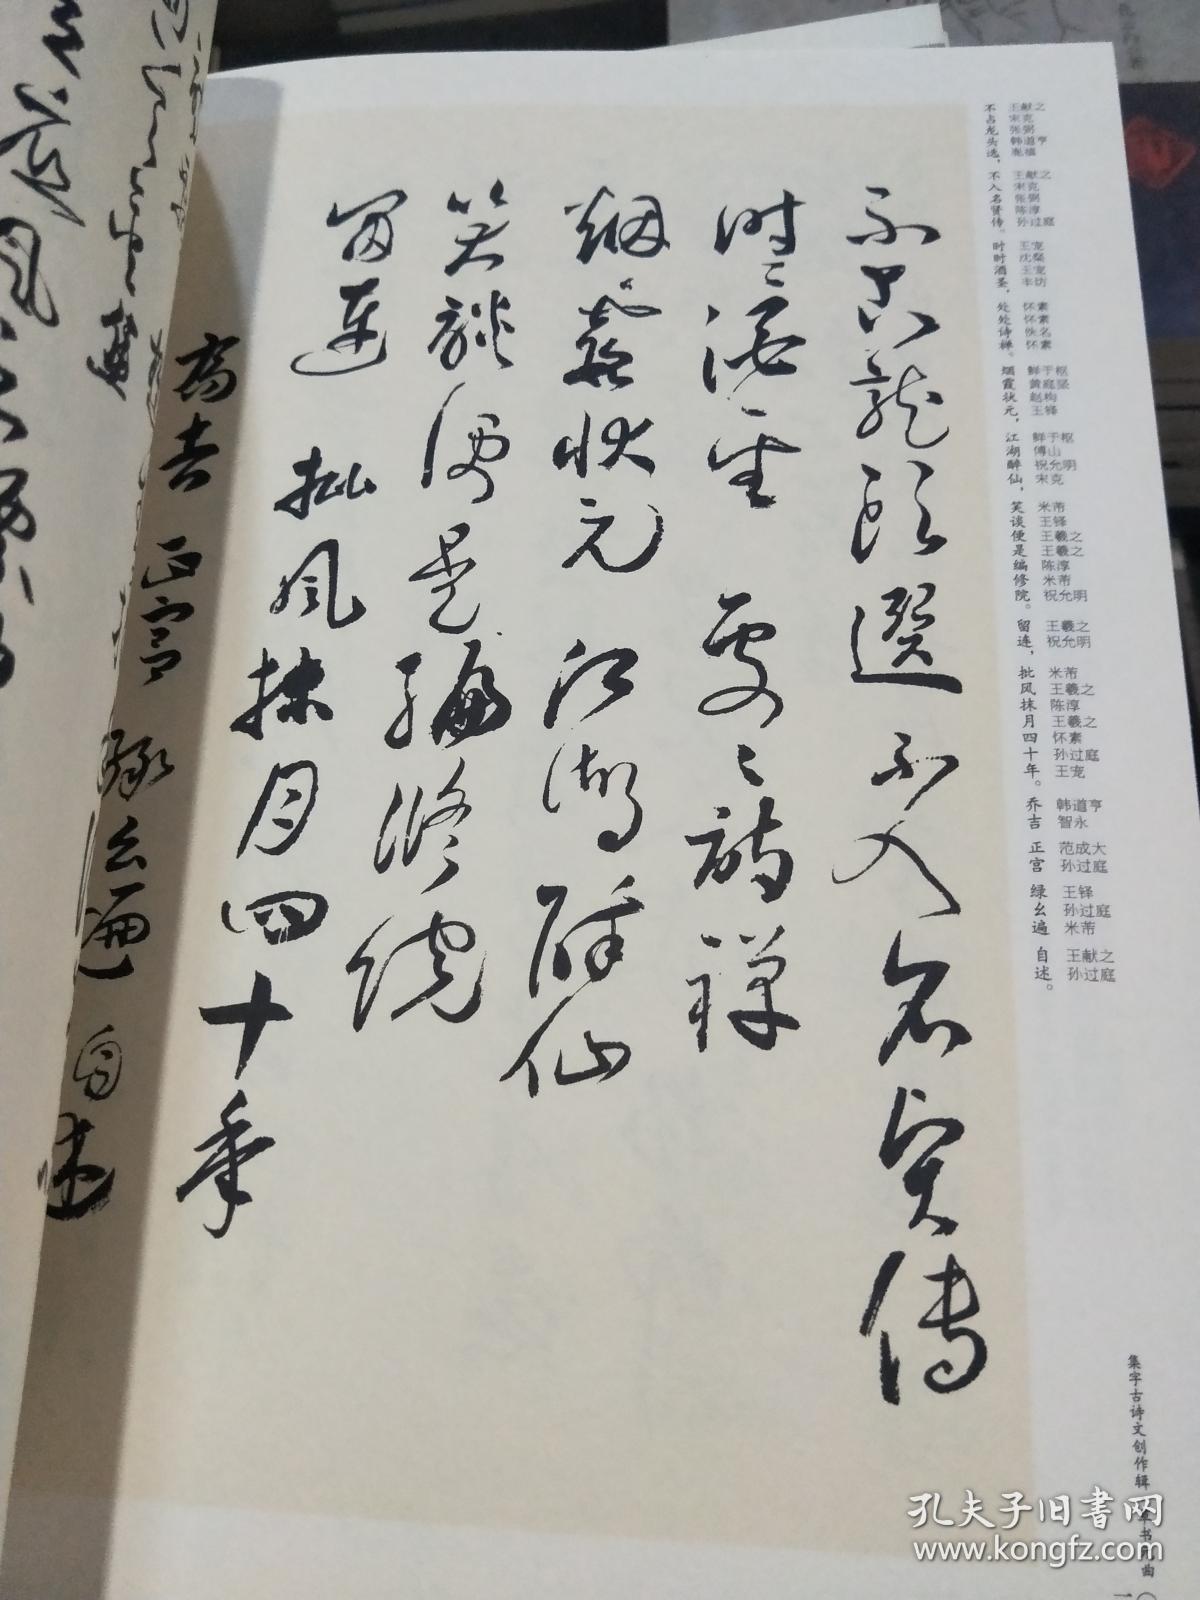 不占龍頭選不入名賢傳
時々酒聖處々詩禪
烟霞狀元江湖醉仙
笑談便是編修院
留連批風抹月四十年
喬吉正宮綠幺遍自述
不占龙头选， 王献之 宋克 张弼 韩道亨
不入名贤传。 王献之 宋克 张弼 陈淳 孙过庭
时时酒圣， 王宠 沈粲 王宠 丰坊
处处诗禅。 怀素 怀素 佚名 怀素
烟霞状元， 鲜于枢 黄庭坚 赵构 王铎
江湖醉仙， 鲜于枢 傅山 祝允明 宋克
笑谈便是编修院。 米芾 王铎 王羲之 王羲之 陈淳 米芾 祝允明
留连， 王羲之 祝允明
批风抹月四十年。 米芾 王羲之 陈淳 王羲之 怀素 孙过庭 王宠
乔吉 韩道亨 智永
正宫 范成大 孙过庭
绿幺遍 王铎 孙过庭 米芾
自述。 王献之 孙过庭
集字古诗文创作辑
书
曲
孔夫子旧书网
www.kongfz.com